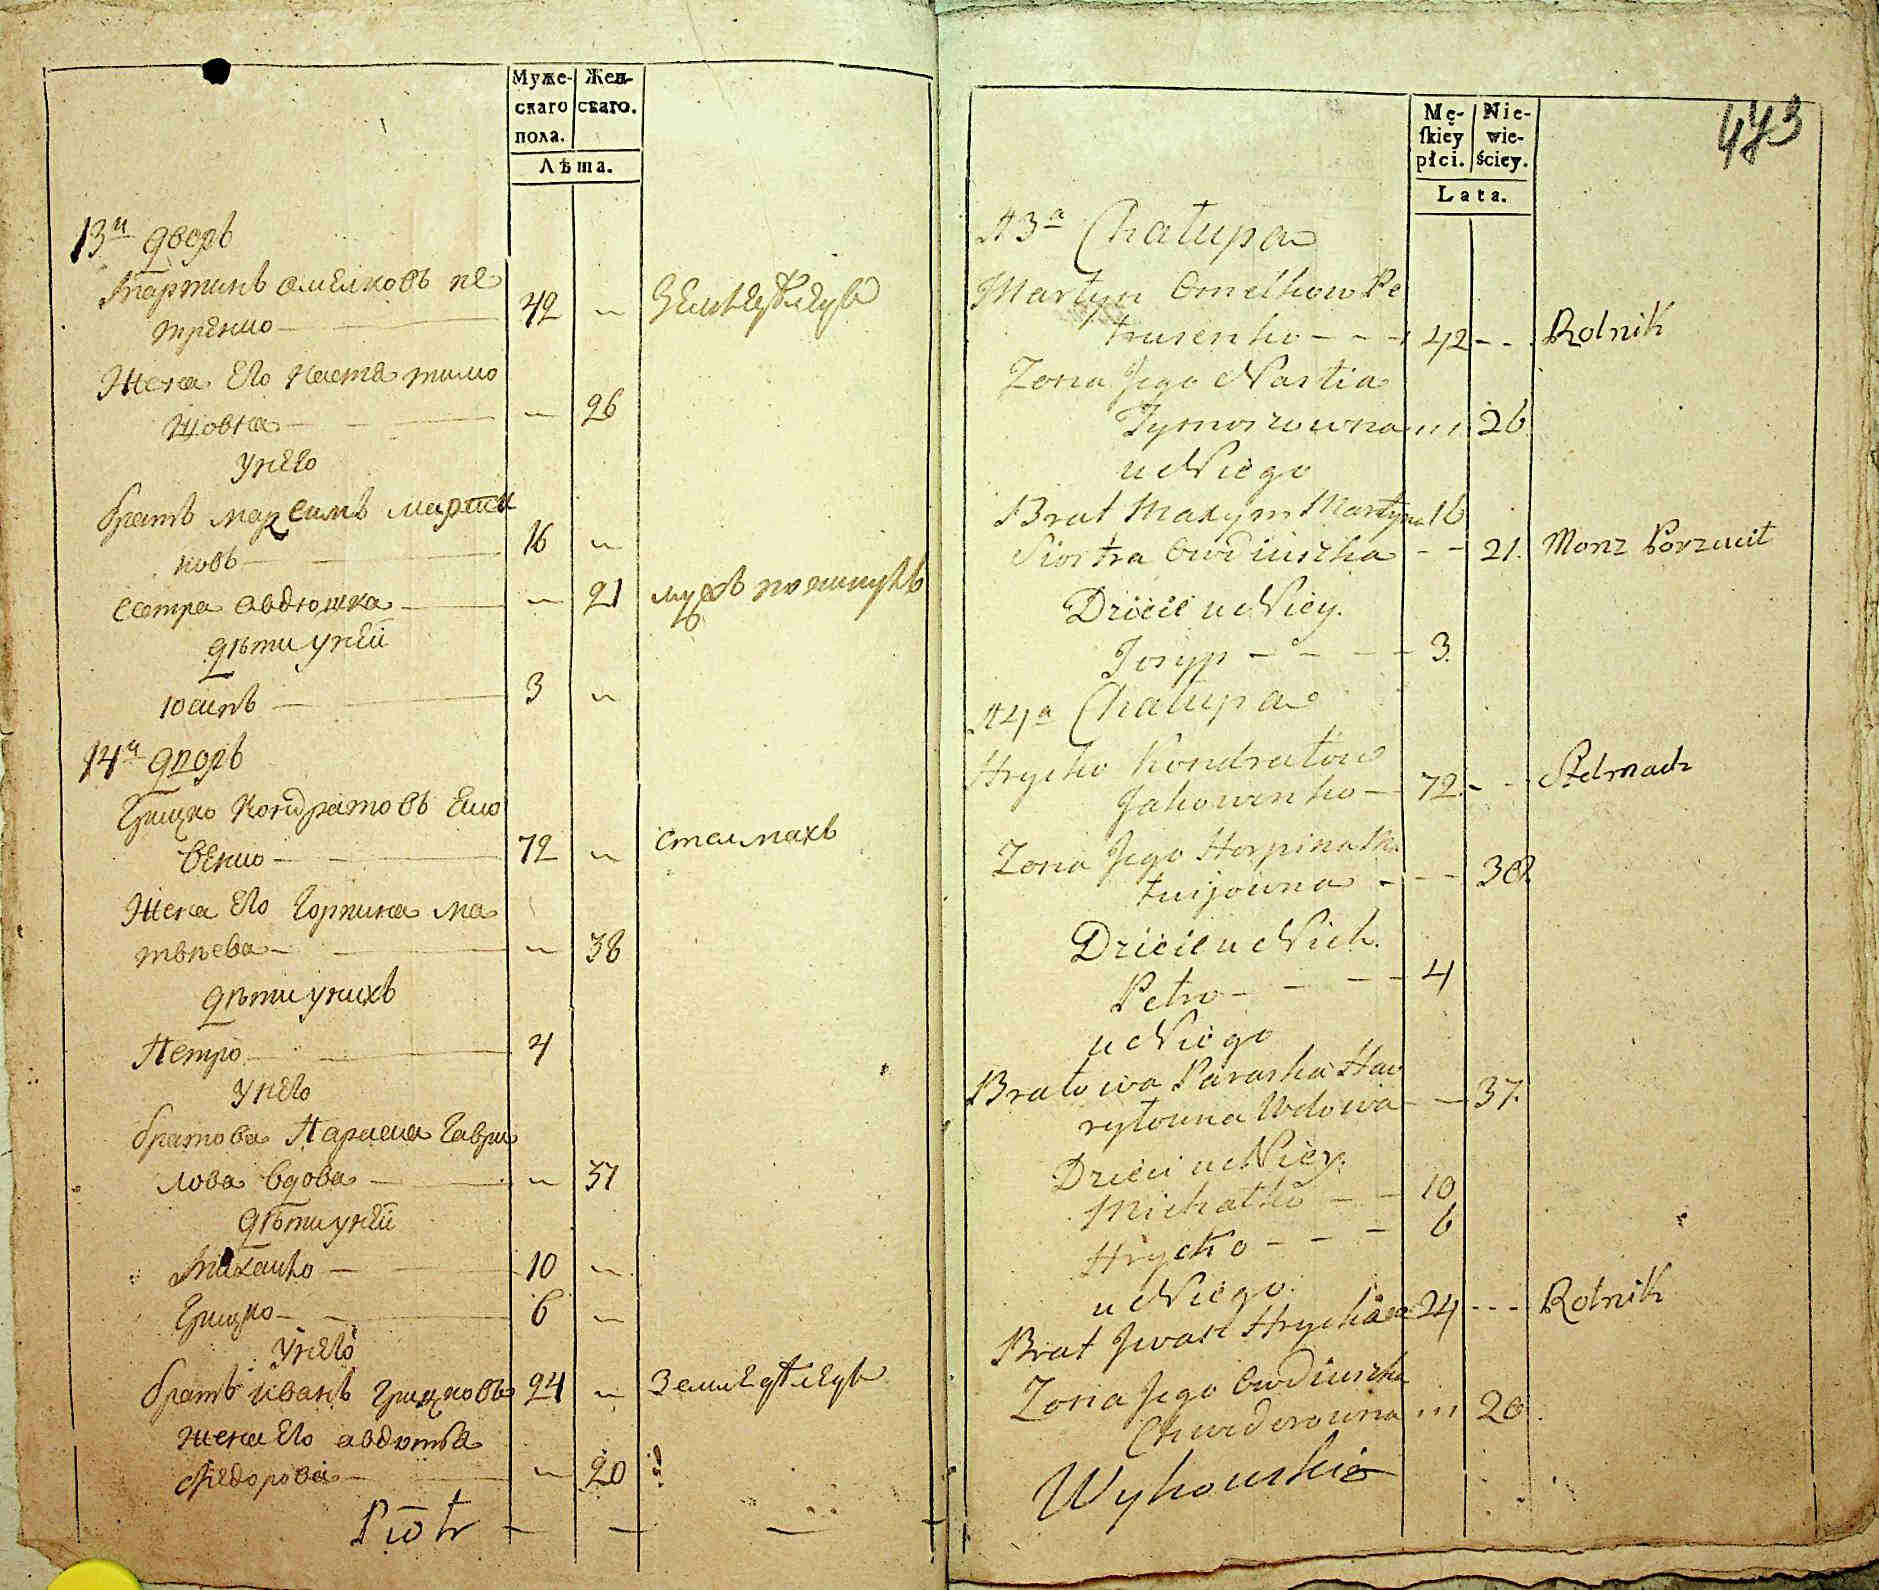 Муже-
скаго
пола.
Жен-
скаго.
Лѣта.
13й дворъ
Мартинъ Омелковъ Пе
тренко
42
Земледѣлецъ
Жена Его Настя тимо
шовна
26
Унего
братъ максимъ марти
новъ
16
Сестра Авдюшка
21
мужъ
дѣти унеи
юсипъ
3
14й дворъ
Грицко Кондратовъ Яко
венко
72
Стелмахъ
Жена Его Горпина ма
твѣева
38
Дѣти унихъ
Петро
4
Унего
братова Параска Гаври
лова вдова
37
Дѣти унеи
Михайло
10
Грицко
6
Унего
братъ иванъ Грицковъ
24
Земледѣлецъ
жена Его авдотья
Федорова
20
Piotr
473
Mę-
ſkiey
płci.
Nie-
wie-
ściey.
Lata.
13a Chałupa
Martyn Omelkow Pe
trusenko
42
Rolnik
Zona Jego Nastia
Tymoszowna
26
u Niego
Brat Maxym Martynu
16
Siostra Owdiuszka
21.
Monz Porzucił
Dzieci u Niey.
Josyp
3.
14a Chałupa
Hrycko Kondratow
Jakowenko
72.
Stelmach
Zona Jego Horpina Ma
twijowna
38.
Dzieci u Nich.
Petro
4
u Niego
Bratowa Paraska Haw
ryłowna Wdowa
37.
Dzieci u Niey.
Michałko
10
Hrycko
6
u Niego.
Brat Jwan Hryckow
24
Rolnik
Zona Jego Owdiuszka
Chwedorowna
20.
Wyhowski